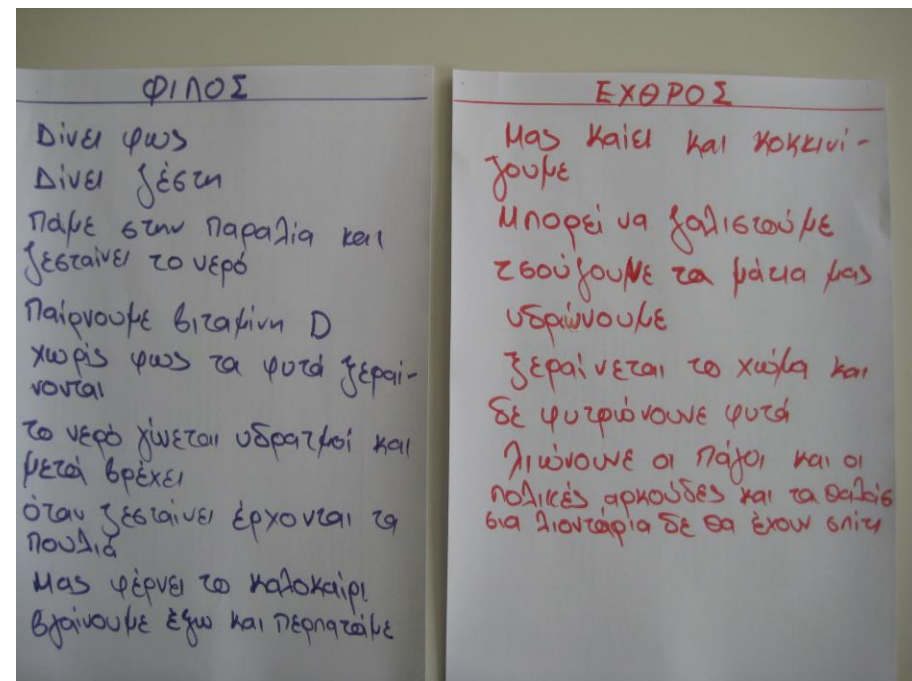 ΦΙΛΟΣ
Δίνει φως
Δίνει ζέστη
Πάμε στην παραλία και
ζεσταίνει το νερό
Παίρνουμε βιταμίνη D
χωρίς φως τα φυτά ξεραί-
νονται
το νερό γίνεται υδρατμοί και
μετά βρέχει
όταν ζεσταίνει έρχονται τα
πουλιά
Μας φέρνει το καλοκαίρι
βγαίνουμε έξω και περπατάμε
ΕΧΘΡΟΣ
Μας καίει και κοκκινί-
ζουμε
Μπορεί να ζαλιστούμε
τσούζουνε τα μάτια μας
υδρώνουμε
ξεραίνεται το χώμα και
δε φυτρώνουνε φυτά
λιώνουνε οι πάγοι και οι
πολικές αρκούδες και τα θαλάσ
σια λιοντάρια δε θα έχουν σπίτι